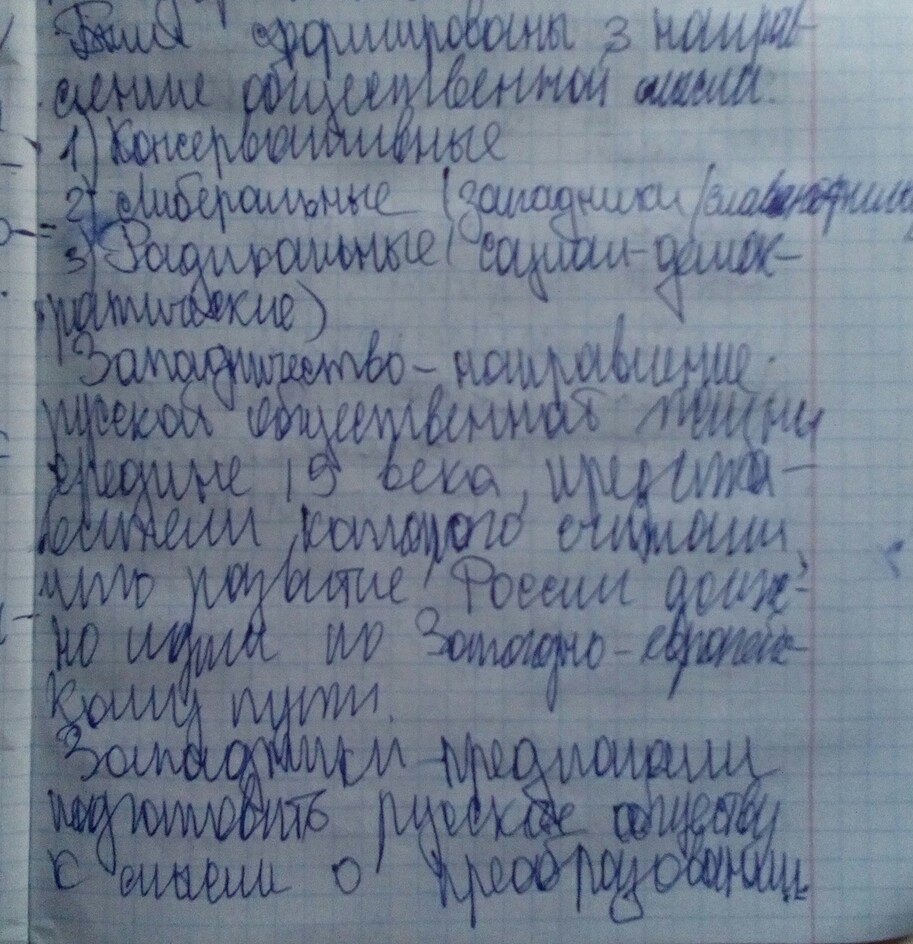 Были сформированы 3 направ-
ление общественной мысли:
1) Консервативные
2) Либеральные (западники/славянофилы
3) Радикальные (социал-демок-
ратические)
Западничество - направление
русской общественной
середине 19 века, предста-
вители которого считали
что развитие России долж-
но идти по Западно-европейс-
кому пути.
Западники предлагали
подготовить русское обществу
к мысли о преобразовании